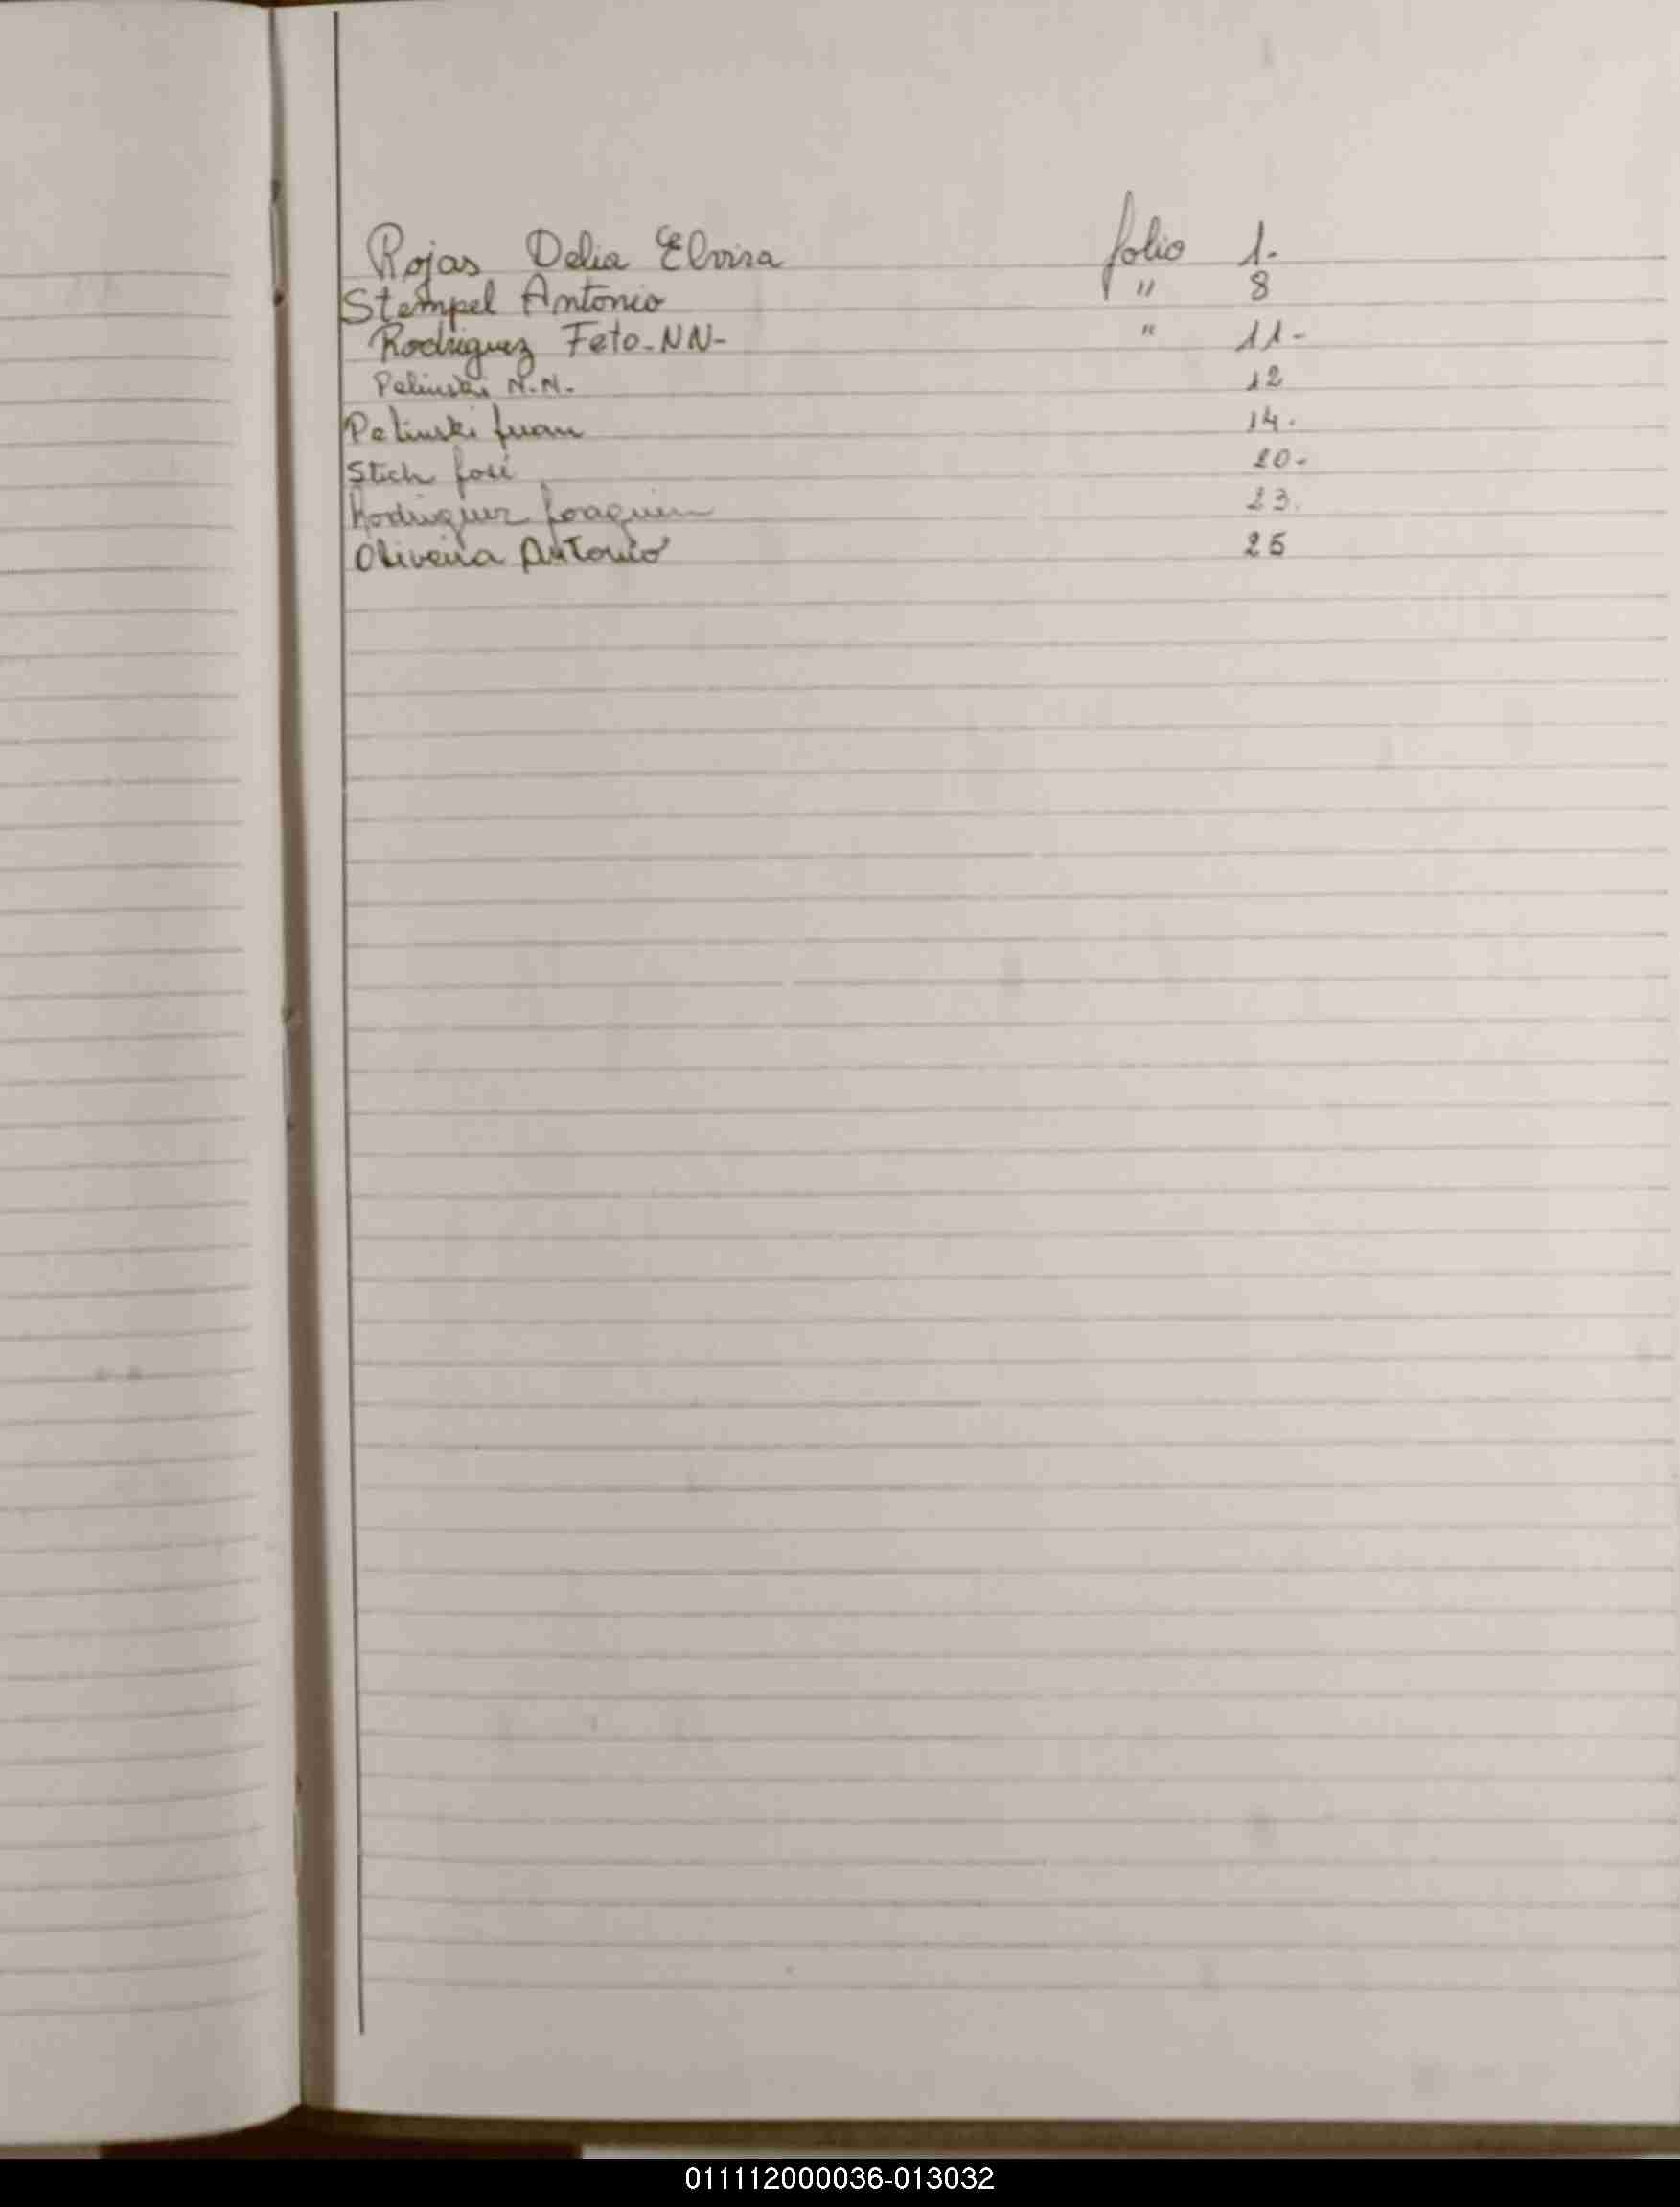 Rojas Delia Elvira folio 1.
Stempel Antonio " 8
Rodriguez Feto-NN- " 11-
Pelinski N.N. 12
Pelinski Juan 14.
Stich José 20-
Rodriguez Joaquin 23.
Oliveira Antonio 25
011112000036-013032